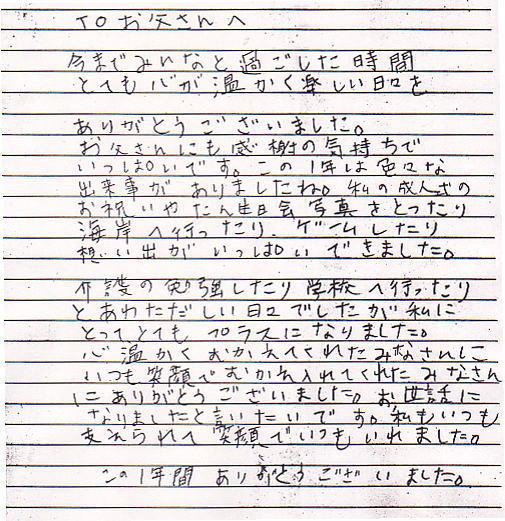 TO お父さんへ
今までみんなと過ごした時間
とても心が温かく楽しい日々を
ありがとうございました。
お父さんにも感謝の気持ちで
いっぱいです。この1年は色々な
出来事がありましたね。私の成人式の
お祝いやたん生日会写真をとったり
海岸へ行ったり、ゲームしたり
想い出がいっぱいできました。
介護の勉強したり学校へ行ったり
とあわただしい日々でしたが私に
とってとてもプラスになりました。
心温かくむかえてくれたみなさんに
いつも笑顔でむかえ入れてくれたみなさん
にありがとうございました。お世話に
なりましたと言いたいです。私もいつも
支えられて笑顔でいつもいれました。
この1年間ありがとうございました。